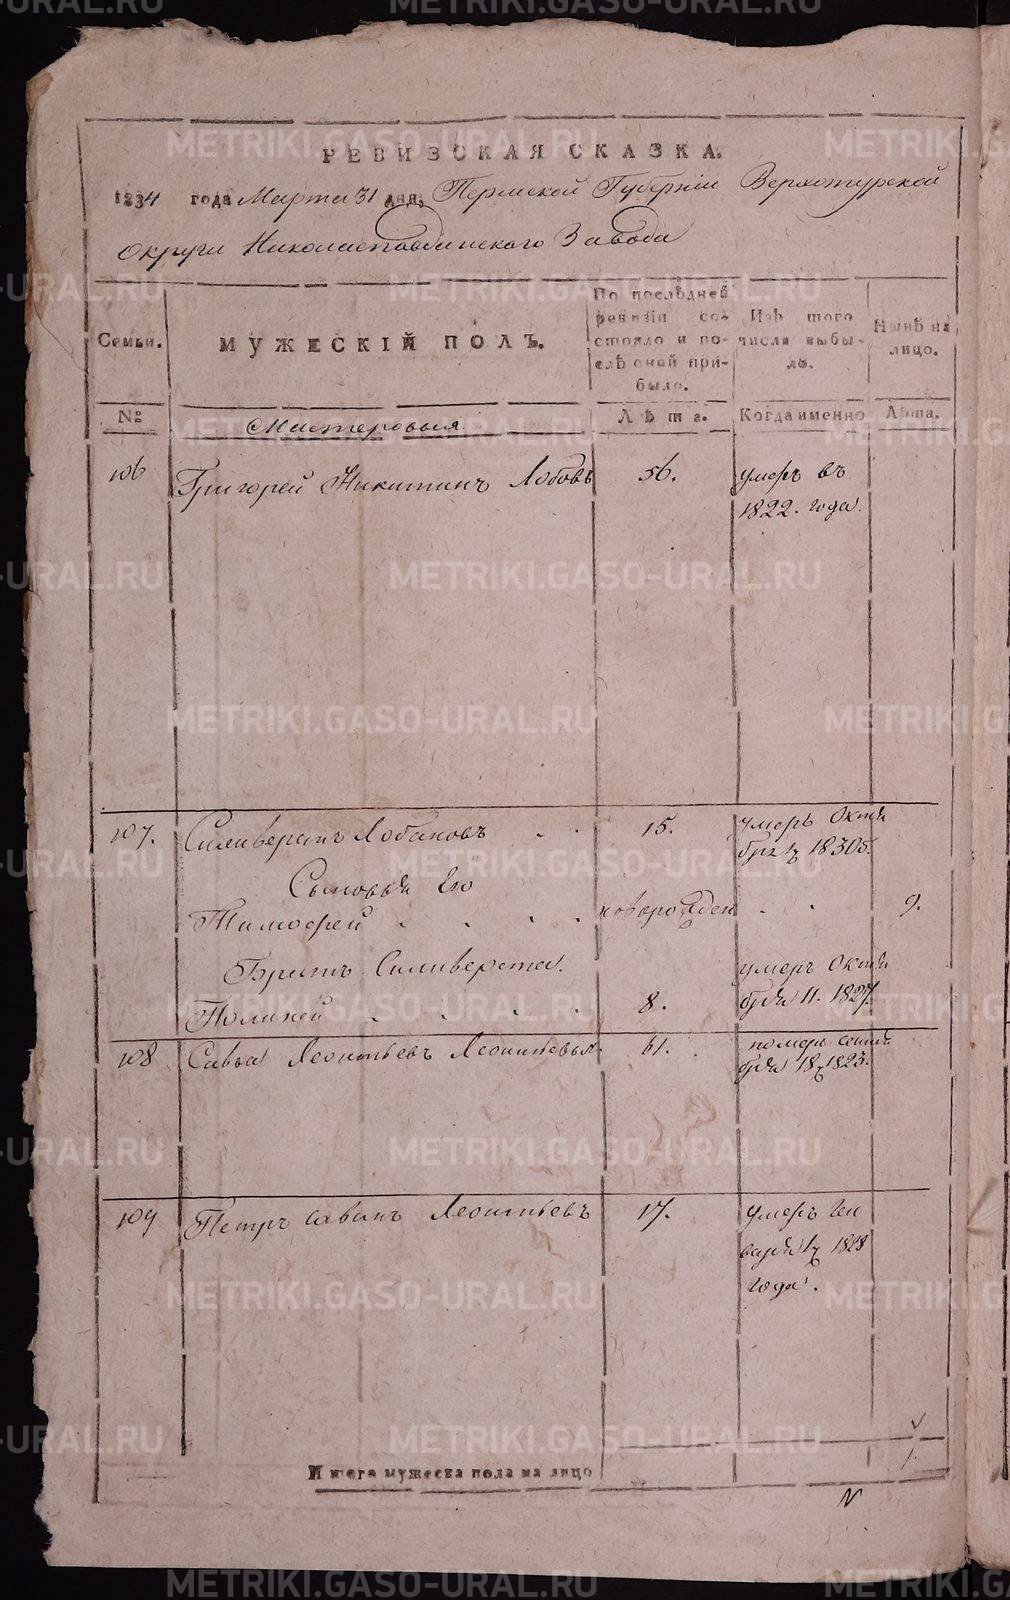 РЕВИЗСКАЯ СКАЗКА.
1834 года Марта 31 дня, Пермской Губерніи Верхотурской
Округи Николаепавдинскаго Завода
Семьи.
МУЖЕСКІЙ ПОЛЪ.
По послѣдней
ревизіи со-
стояло и по-
слѣ оной при-
было.
Изъ того
числа выбы-
ло.
Нынѣ на
лицо.
№
Мастеровыя
Лѣта.
Когда именно
Лѣта.
106 Григорей Никитинъ Лобовъ 56. умеръ въ
1822. года.
107. Силиверстъ Лобановъ 15. умеръ Октя
бря 1830
Сыновья его
Тимофей новорожден 9.
Братъ Силиверста. умеръ Октя
8. бря 11. 1827.
108 Савва Леонтьевъ 61. померъ сентя
бря 18 1823.
109 Петръ Савинъ Леонтьевъ 17. умеръ Ген
варя 1828
года.
Итого мужеска пола на лицо
1.
METRIKI.GASO-URAL.RU